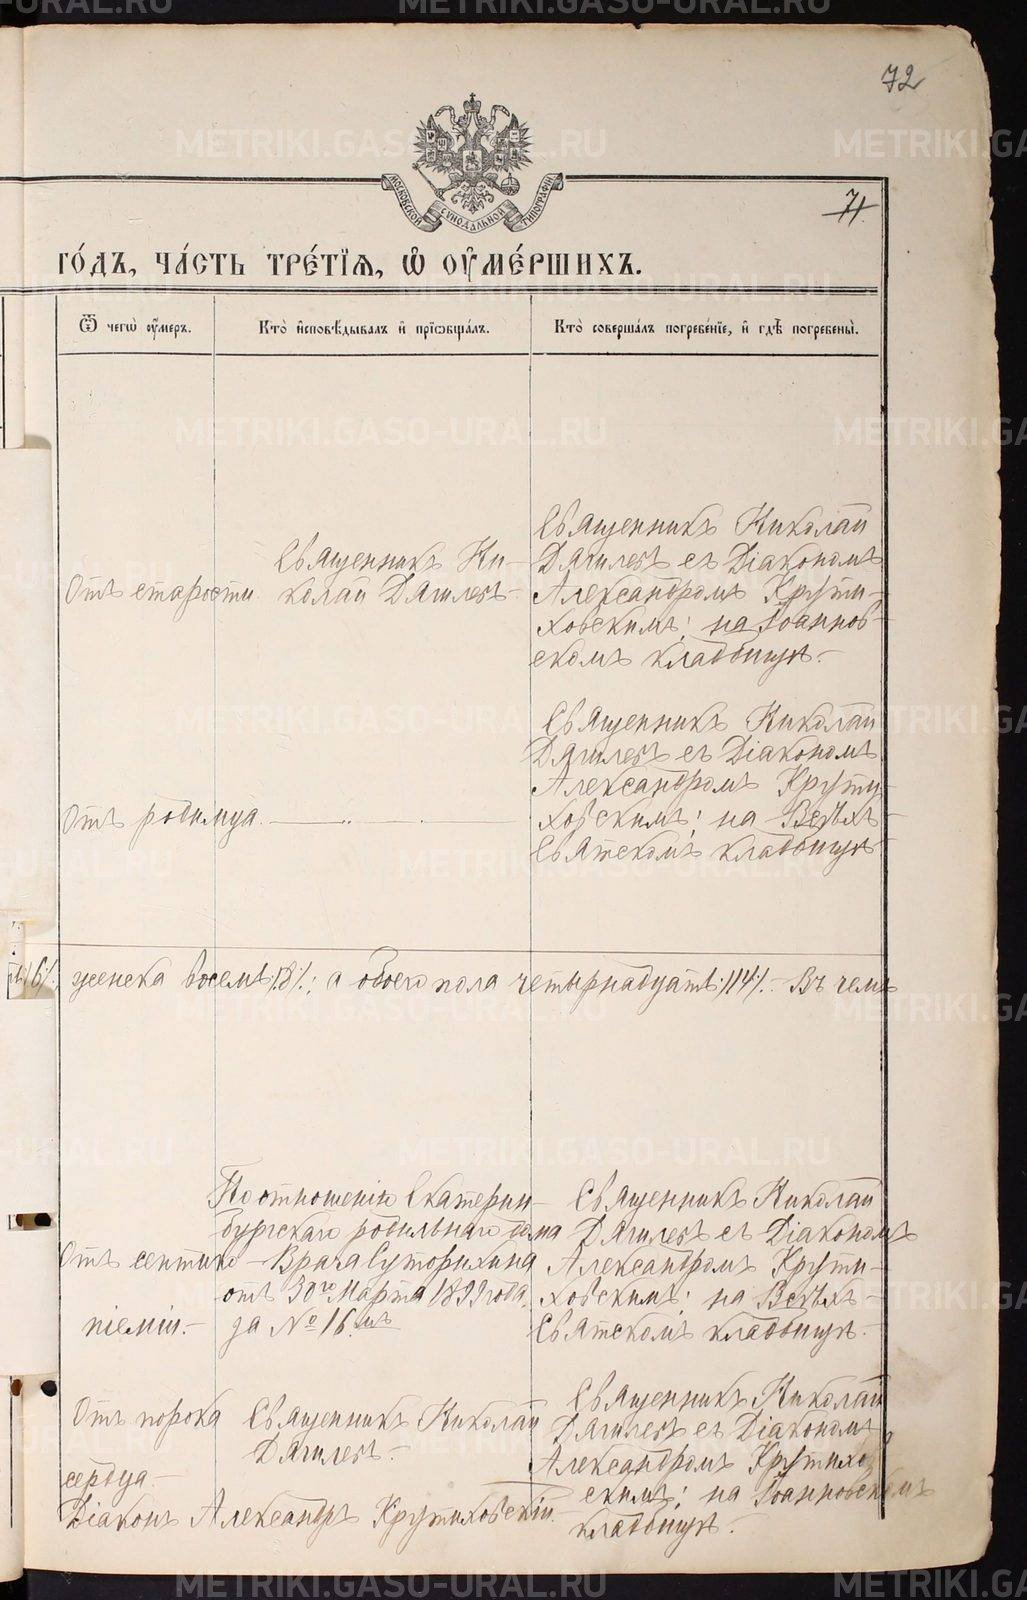 72
71.
МОСКОВСКОЙ СѴНОДАЛЬНОЙ ТИПОГРАФІИ
го́дъ, ча́сть тре́тїѧ, ѡ҆ ᲂу҆ме́ршихъ.
Ѿ чегѡ̀ ᲂу҆́меръ.
Кто̀ и҆сповѣ́дывалъ и҆ прїѡбща́лъ.
Кто̀ соверша́лъ погребе́нїе, и҆ гдѣ̀ погребены̀.
Отъ старости
Священникъ Ни-
колай Дягилевъ.
Священникъ Николай
Дягилевъ съ Діакономъ
Александромъ Крути-
ховскимъ; на Іоаннов-
скомъ кладбищѣ.-
Отъ родимца.
Священникъ Николай
Дягилевъ съ Діакономъ
Александромъ Крути-
ховскимъ; на Всѣхъ-
Святскомъ кладбищѣ
/6/. женска восемь /8/.; а обоего пола четырнадцать /14/. - Въ чемъ
Отъ септико-
піеміи.-
По отношенію Екатерин-
бургскаго родильнаго дома
Врача Суторихина
отъ 30го Марта 1899 года,
за № 16.мъ
Священникъ Николай
Дягилевъ съ Діакономъ
Александромъ Крути-
ховскимъ; на Всѣхъ-
Святскомъ кладбищѣ.-
Отъ порока
сердца.-
Священникъ Николай
Дягилевъ.-
Священникъ Николай
Дягилевъ съ Діакономъ
Александромъ Крутихов
скимъ; на Іоанновскомъ
кладбищѣ.-
Діаконъ Александръ Крутиховскій.
METRIKI.GASO-URAL.RU